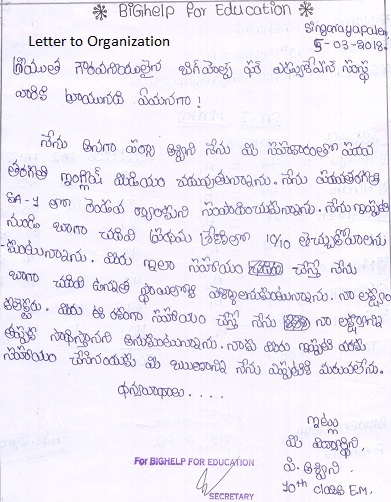 * BiGHelp for Education *
Singarayapalem
5-03-2018.
Letter to Organization
శ్రీయుత గౌరవనీయులైన బిగ్‌హెల్ప్ ఫర్ ఎడ్యుకేషన్ సంస్థ
వారికి వ్రాయునది ఏమనగా!
నేను అనగా అశ్విని నేను మీ సహకారంతో పదవ
తరగతి ఇంగ్లీష్ మీడియం చదువుతున్నాను. నేను పదవతరగతి
SA-1 లో రెండవ ర్యాంకుని సంపాదించుకున్నాను. నేను ఇప్పటి
నుండి బాగా చదివి ప్రథమ శ్రేణిలో 10/10 తెచ్చుకోవాలను
-కుంటున్నాను. మీరు ఇలా సహాయం చేస్తే నేను
బాగా చదివి ఉన్నత స్థాయిలోకి వెళ్ళాలనుకుంటున్నాను. నా లక్ష్యం
మీరు ఈ రకంగా సహాయం చేస్తే నేను నా లక్ష్యాన్ని
తప్పక సాధిస్తానని అనుకుంటున్నాను. నాకు మీరు ఇప్పటి వరకు
సహాయం చేసినందుకు మీ ఋణాన్ని నేను ఎప్పటికి మరువలేను.
ధన్యవాదాలు....
ఇట్లు
మీ విద్యార్థిని,
పి. అశ్విని.
10th class E.M.
For BIGHELP FOR EDUCATION
SECRETARY